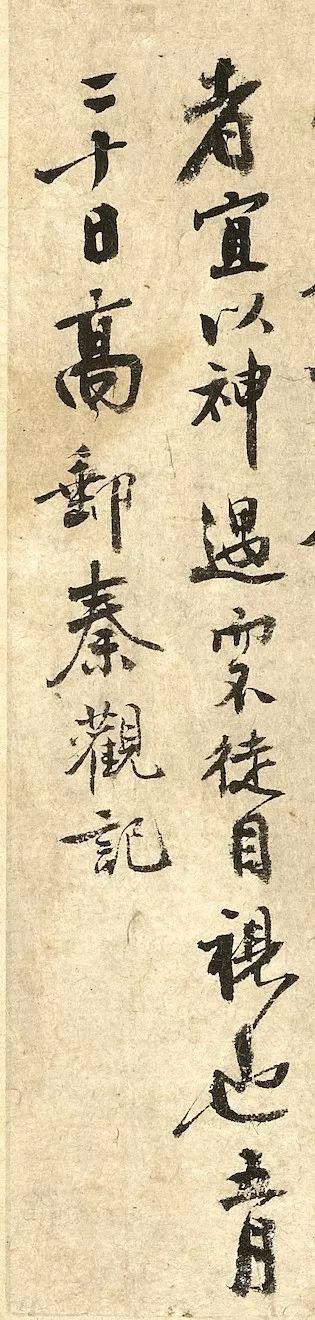 者宜以神遇而不徒目視也五月
二十日高郵秦觀記